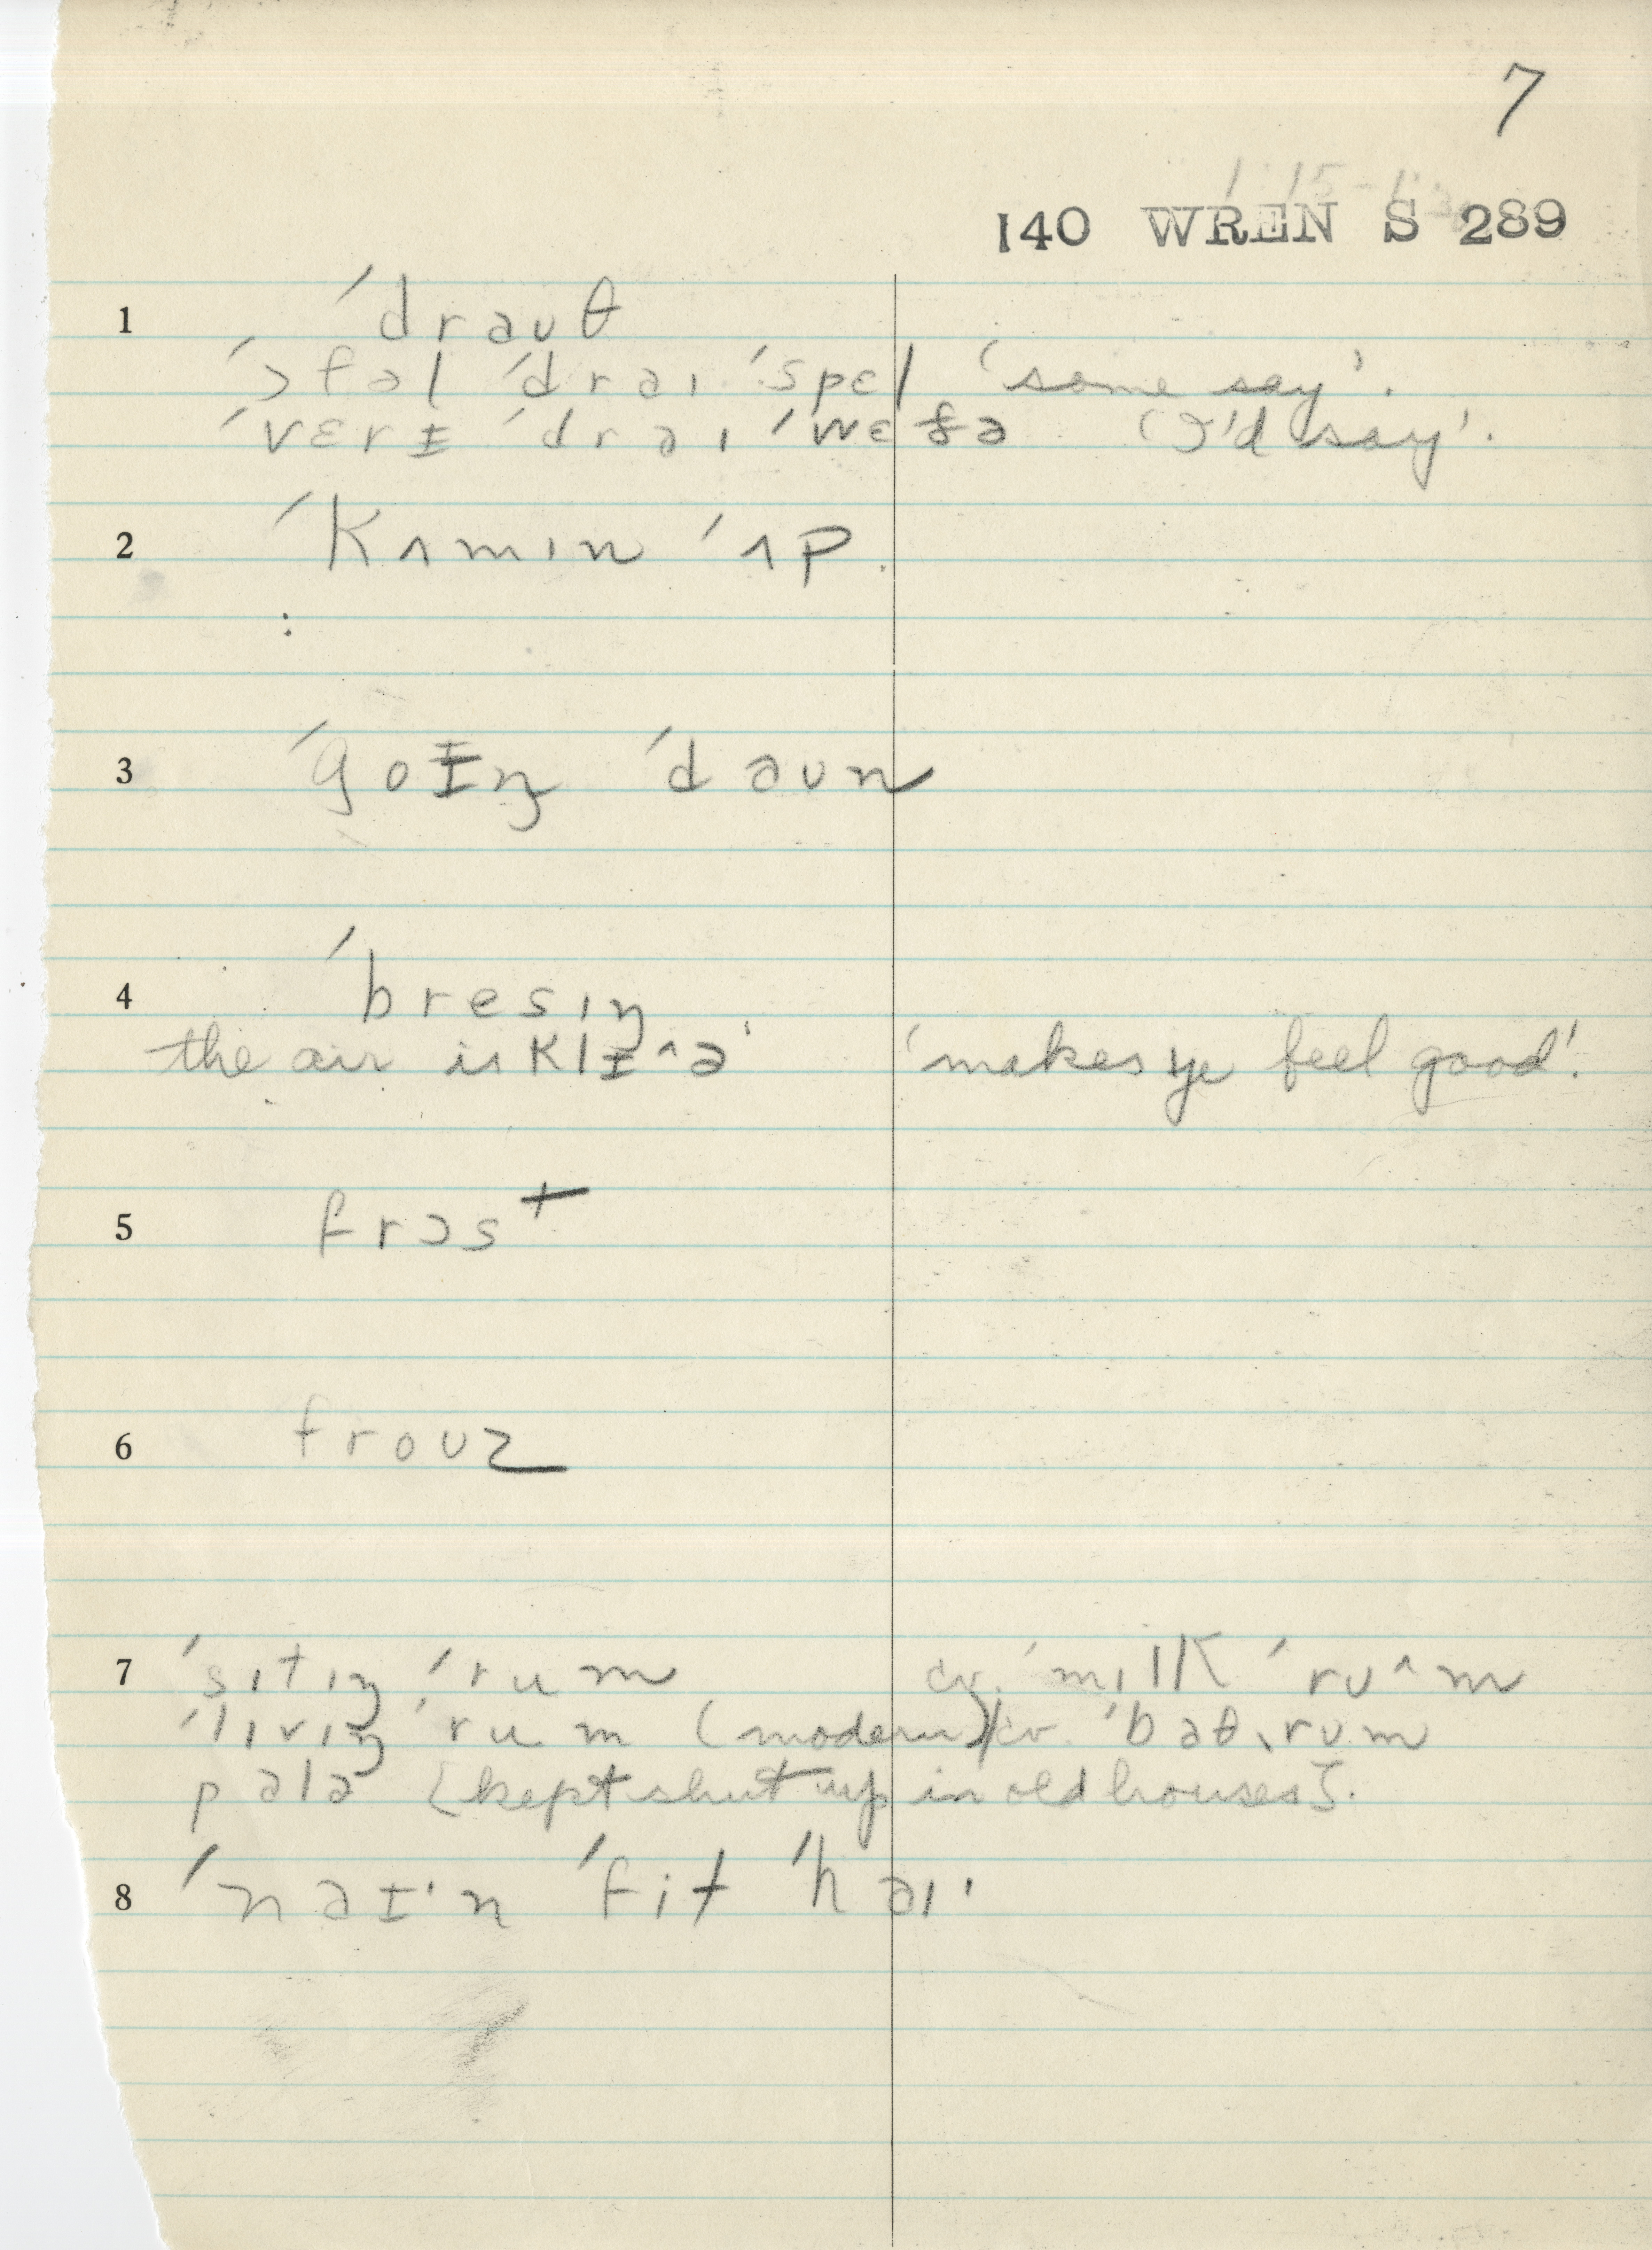 7
140 WREN S 289
1 ˈdraʊθ
ˈɔfəl ˈdraɪ ˈspɛl 'some say'.
ˈvɛrɨ ˈdraɪ ˈwɛðə 'I'd say'.
2 ˈkʌmɪn ˈʌp.
3 ˈgoɨŋ ˈdaʊn
4 ˈbresɪŋ
the air is klɨ^ə 'makes ye feel good'.
5 frɔst
6 froʊz
7 ˈsɪtɪŋ ˈrum cv. ˈmɪlk ˈrʊ^m
ˈlɪvɪŋ ˈrum (modern) cv. ˈbaθˌrʊm
palə [kept shut up in old houses].
8 ˈnaɨˑn ˈfit ˈhaɪˑ